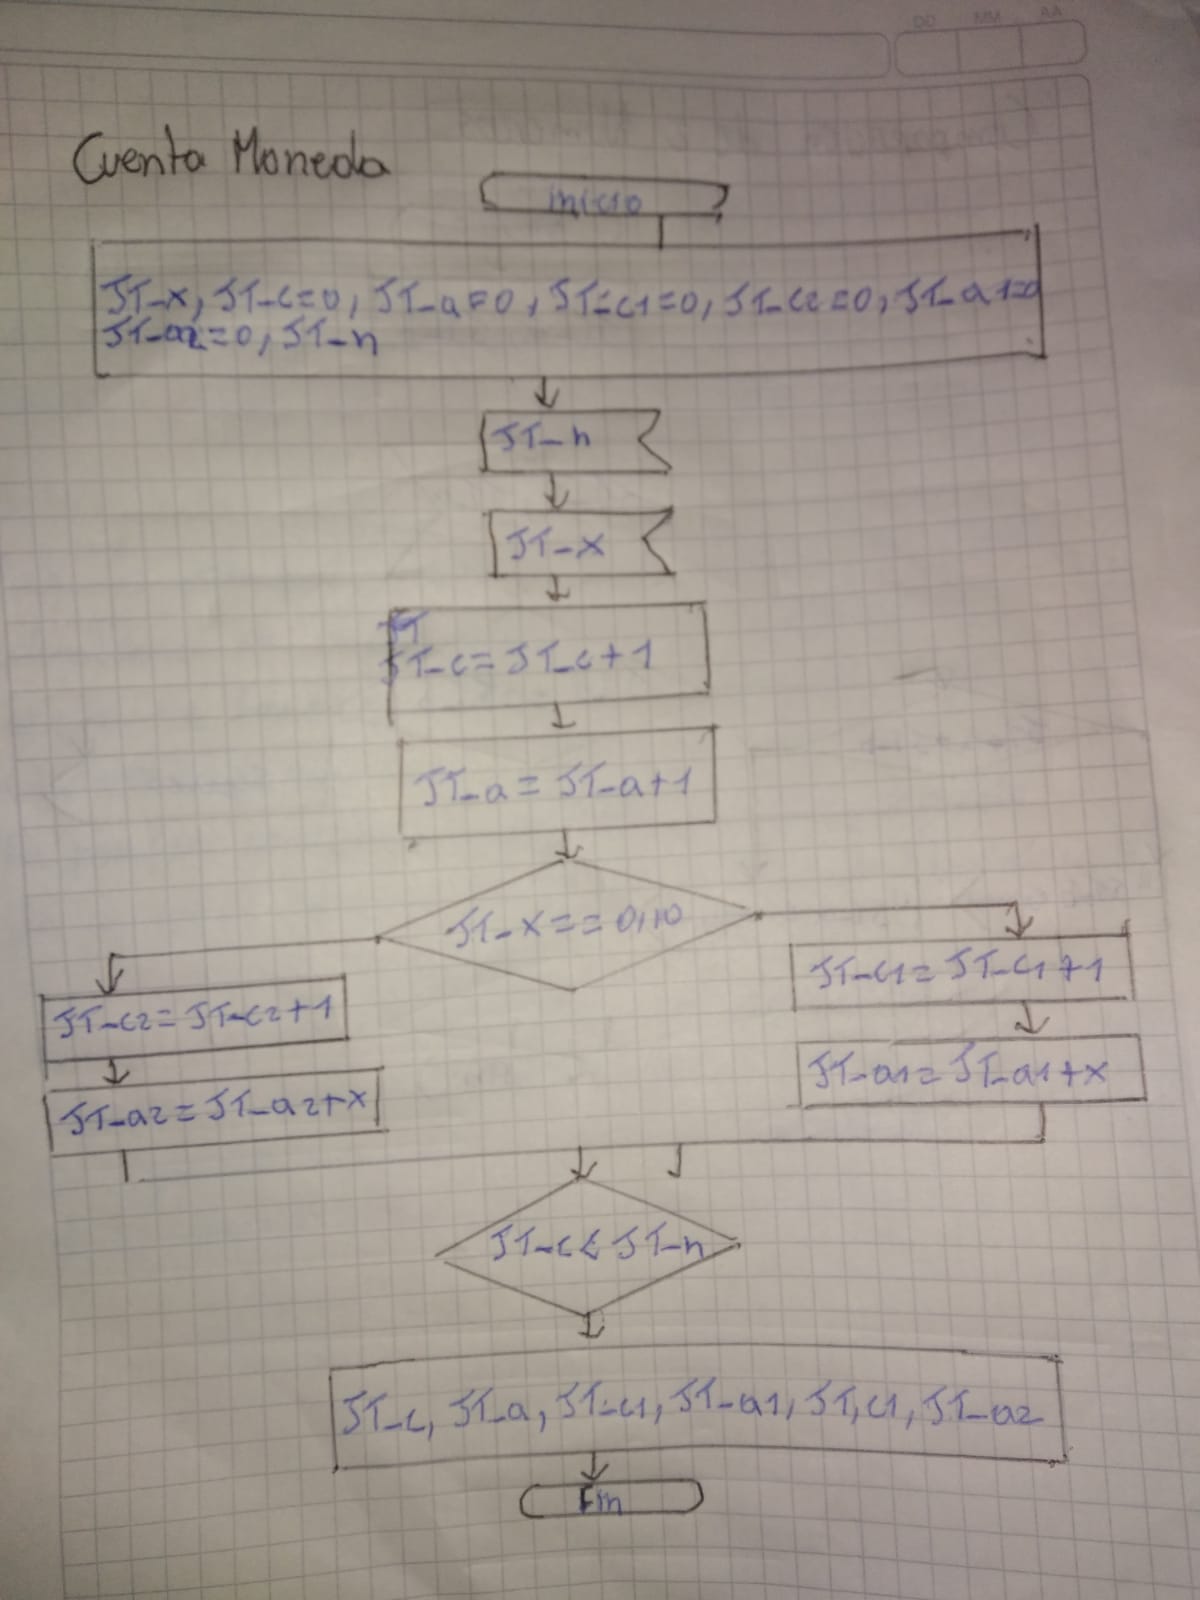 DD MM AA
Cuenta Moneda
inicio
JT-x, JT-c=0, JT-a=0, JT-c1=0, JT-c2=0, JT-a1=0
JT-a2=0, JT-n
JT-n
JT-x
JT
JT-c=JT-c+1
JT-a=JT-a+1
JT-x==0,10
JT-c1=JT-c1+1
JT-c2=JT-c2+1
JT-a1=JT-a1+x
JT-a2=JT-a2+x
JT-c≤JT-n
JT-c, JT-a, JT-c1, JT-a1, JT,c1, JT-a2
Fin